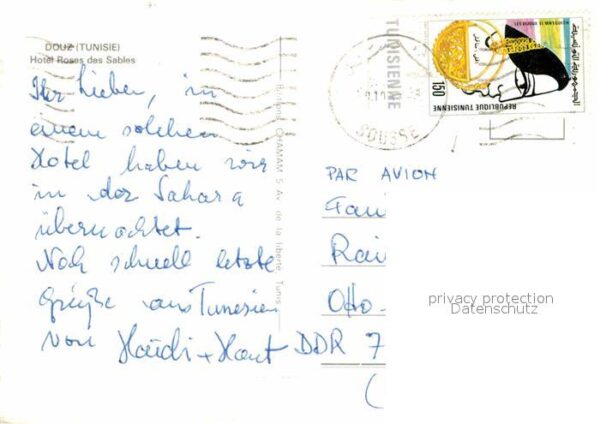 DOUZ (TUNISIE)
Hotel Roses des Sables
Ihr Lieben, in
einem solchen
Hotel haben wir
in der Sahara
übernachtet.
Noch schnell letzte
Grüße aus Tunesien
von Haidi + Horst
CHAMAM 5 Av. de la liberté Tunis
TUNISIENNE
SOUSSE
REPUBLIQUE TUNISIENNE
150
PAR AVION
Fam
Rai
Otto-
DDR 7
(
privacy protection
Datenschutz